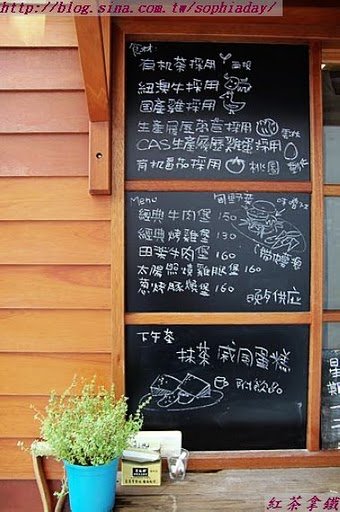 http://blog.sina.com.tw/sophiaday/
食材:
有机菜採用
紐澳牛採用
国產雞採用
生產履歷萵苣採用
CAS生產履歷雞蛋採用
有机番茄採用 桃園
Menu
經典牛肉堡 150
經典烤雞堡 130
田樂牛肉堡 160
太陽照燒雞腿堡 160
蔥烤豚燒堡 160
晚5供应
下午茶
抹茶戚風蛋糕
附飲品
紅茶拿鐵